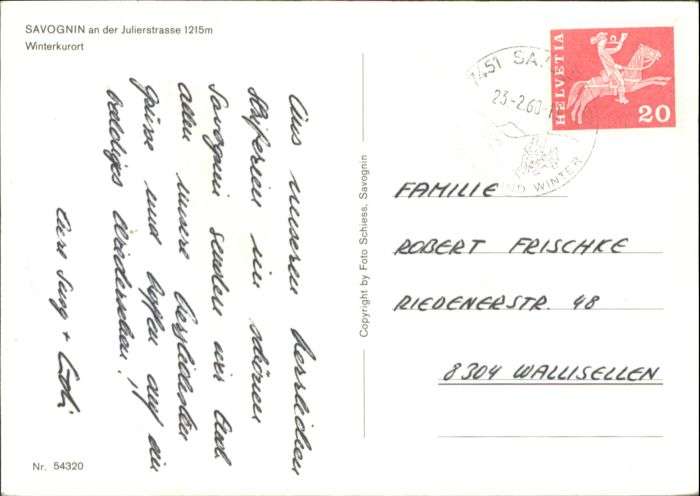 SAVOGNIN an der Julierstrasse 1215m
Winterkurort
Aus unseren herrlichen
Skiferien im schönen
Savognin senden wir Euch
allen unsere herzlichsten
Grüsse und hoffen auf ein
baldiges Wiedersehen!
Eure
Nr. 54320
Copyright by Foto Schiess, Savognin
7451 SA
23-2.60
UND WINTER
HELVETIA
20
FAMILIE
ROBERT FRISCHKE
RIEDENERSTR. 48
8304 WALLISELLEN